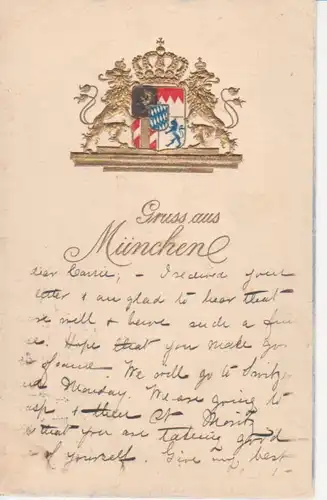 Gruss aus
München
Dear Carrie; - I received your
letter & am glad to hear that
are well & have such a fine
Hope that you make good
We will go to Switz
Monday. We are going to
& then St Moritz
that you are taking good
of yourself. Give my best